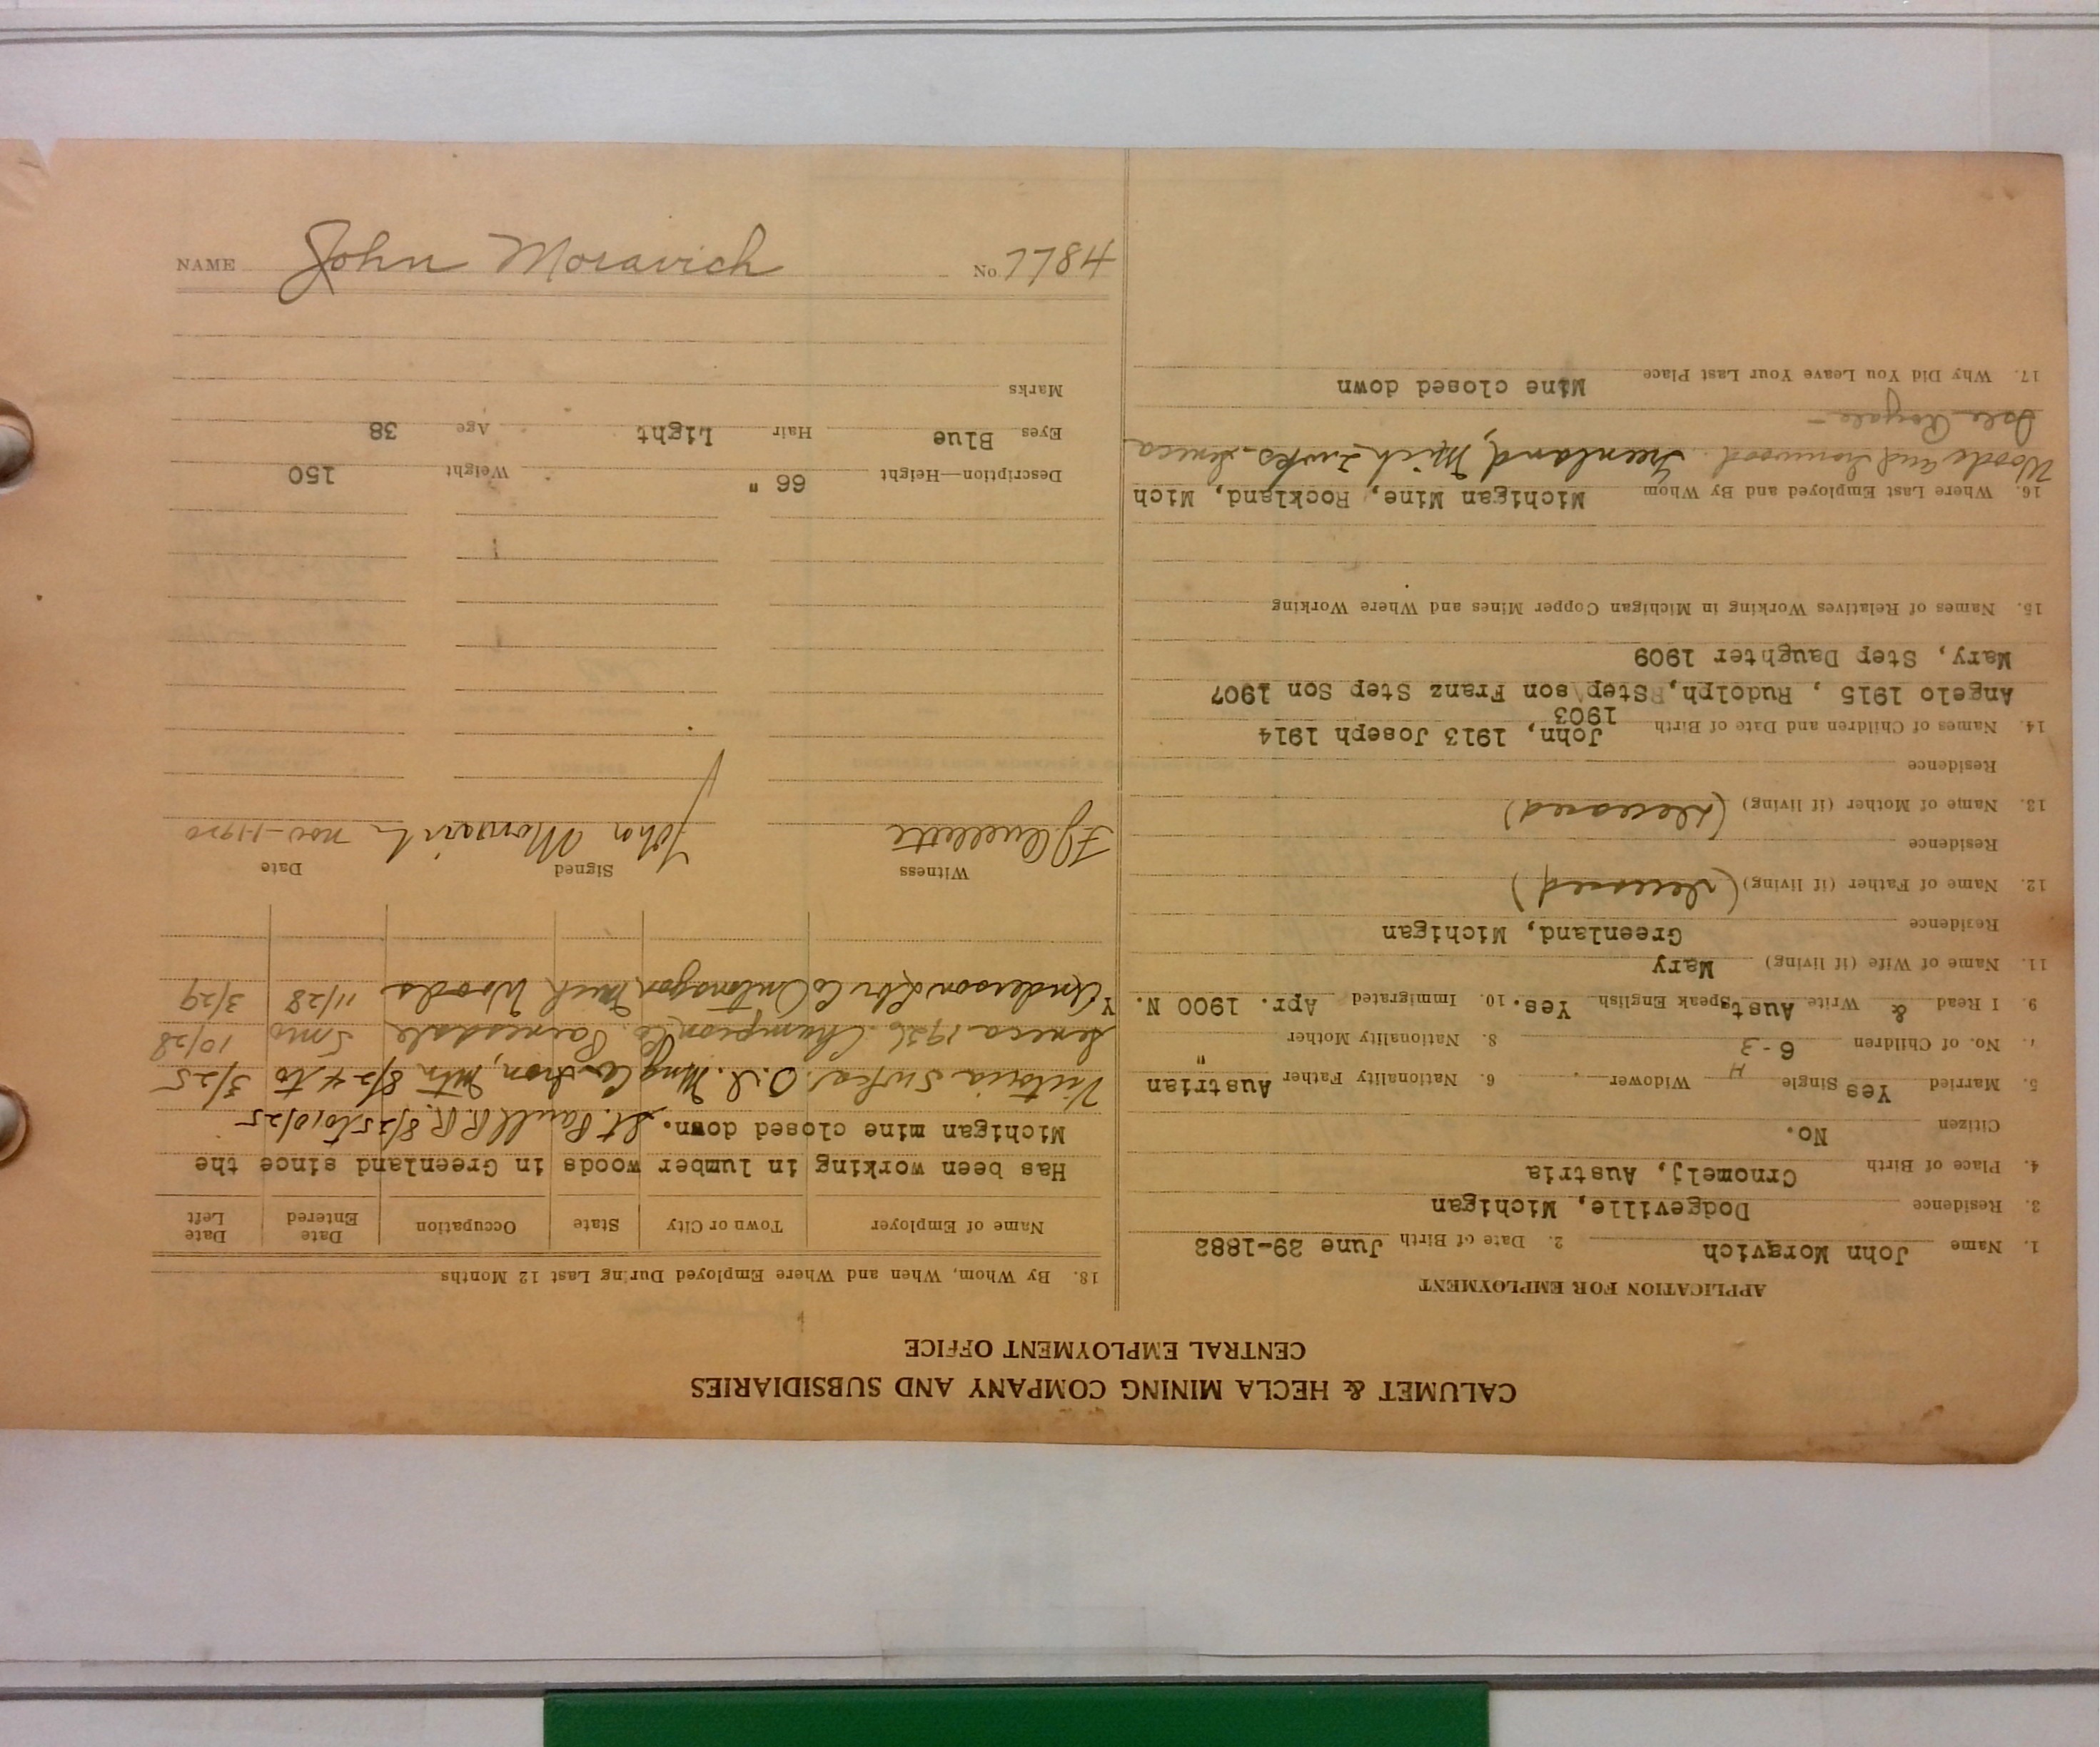 CALUMET & HECLA MINING COMPANY AND SUBSIDIARIES
CENTRAL EMPLOYMENT OFFICE
APPLICATION FOR EMPLOYMENT
1. Name John Moravich 2. Date of Birth June 29-1882
3. Residence Dodgeville, Michigan
4. Place of Birth Crnomelj, Austria
Citizen No.
5. Married Yes Single H Widower 6. Nationality Father Austrian
7. No. of Children 6-3 8. Nationality Mother "
9. I Read & Write Aust Speak English Yes. 10. Immigrated Apr. 1900 N. Y
11. Name of Wife (if living) Mary
Residence Greenland, Michigan
12. Name of Father (if living) (deceased)
Residence
13. Name of Mother (if living) (deceased)
Residence
14. Names of Children and Date of Birth John, 1913 Joseph 1914
1903
Angelo 1915 , Rudolph, Step son Franz Step Son 1907
Mary, Step Daughter 1909
15. Names of Relatives Working in Michigan Copper Mines and Where Working
16. Where Last Employed and By Whom Michigan Mine, Rockland, Mich
Woods and Ironwood. Greenland, Mich 2 wks - Seneca
Isle Royale -
17. Why Did You Leave Your Last Place Mine closed down
18. By Whom, When and Where Employed During Last 12 Months
Name of Employer Town or City State Occupation Date Entered Date Left
Has been working in lumber woods in Greenland since the
Michigan mine closed down. St. Paul R.R. 8/25 to 10/25
Victoria 3 wks. O.I. Mng Co Iron Mtn 8/24 to 3/25
Seneca 1926 Champion Co. Painesdale 5 mo 10/28
Anderson Lbr Co Ontonagon Mich Woods 11/28 3/29
Witness Signed Date
FJ Ouellette John Moravich Nov-1-1920
Description—Height 66 " Weight 150
Eyes Blue Hair Light Age 38
Marks
NAME John Moravich No 7784